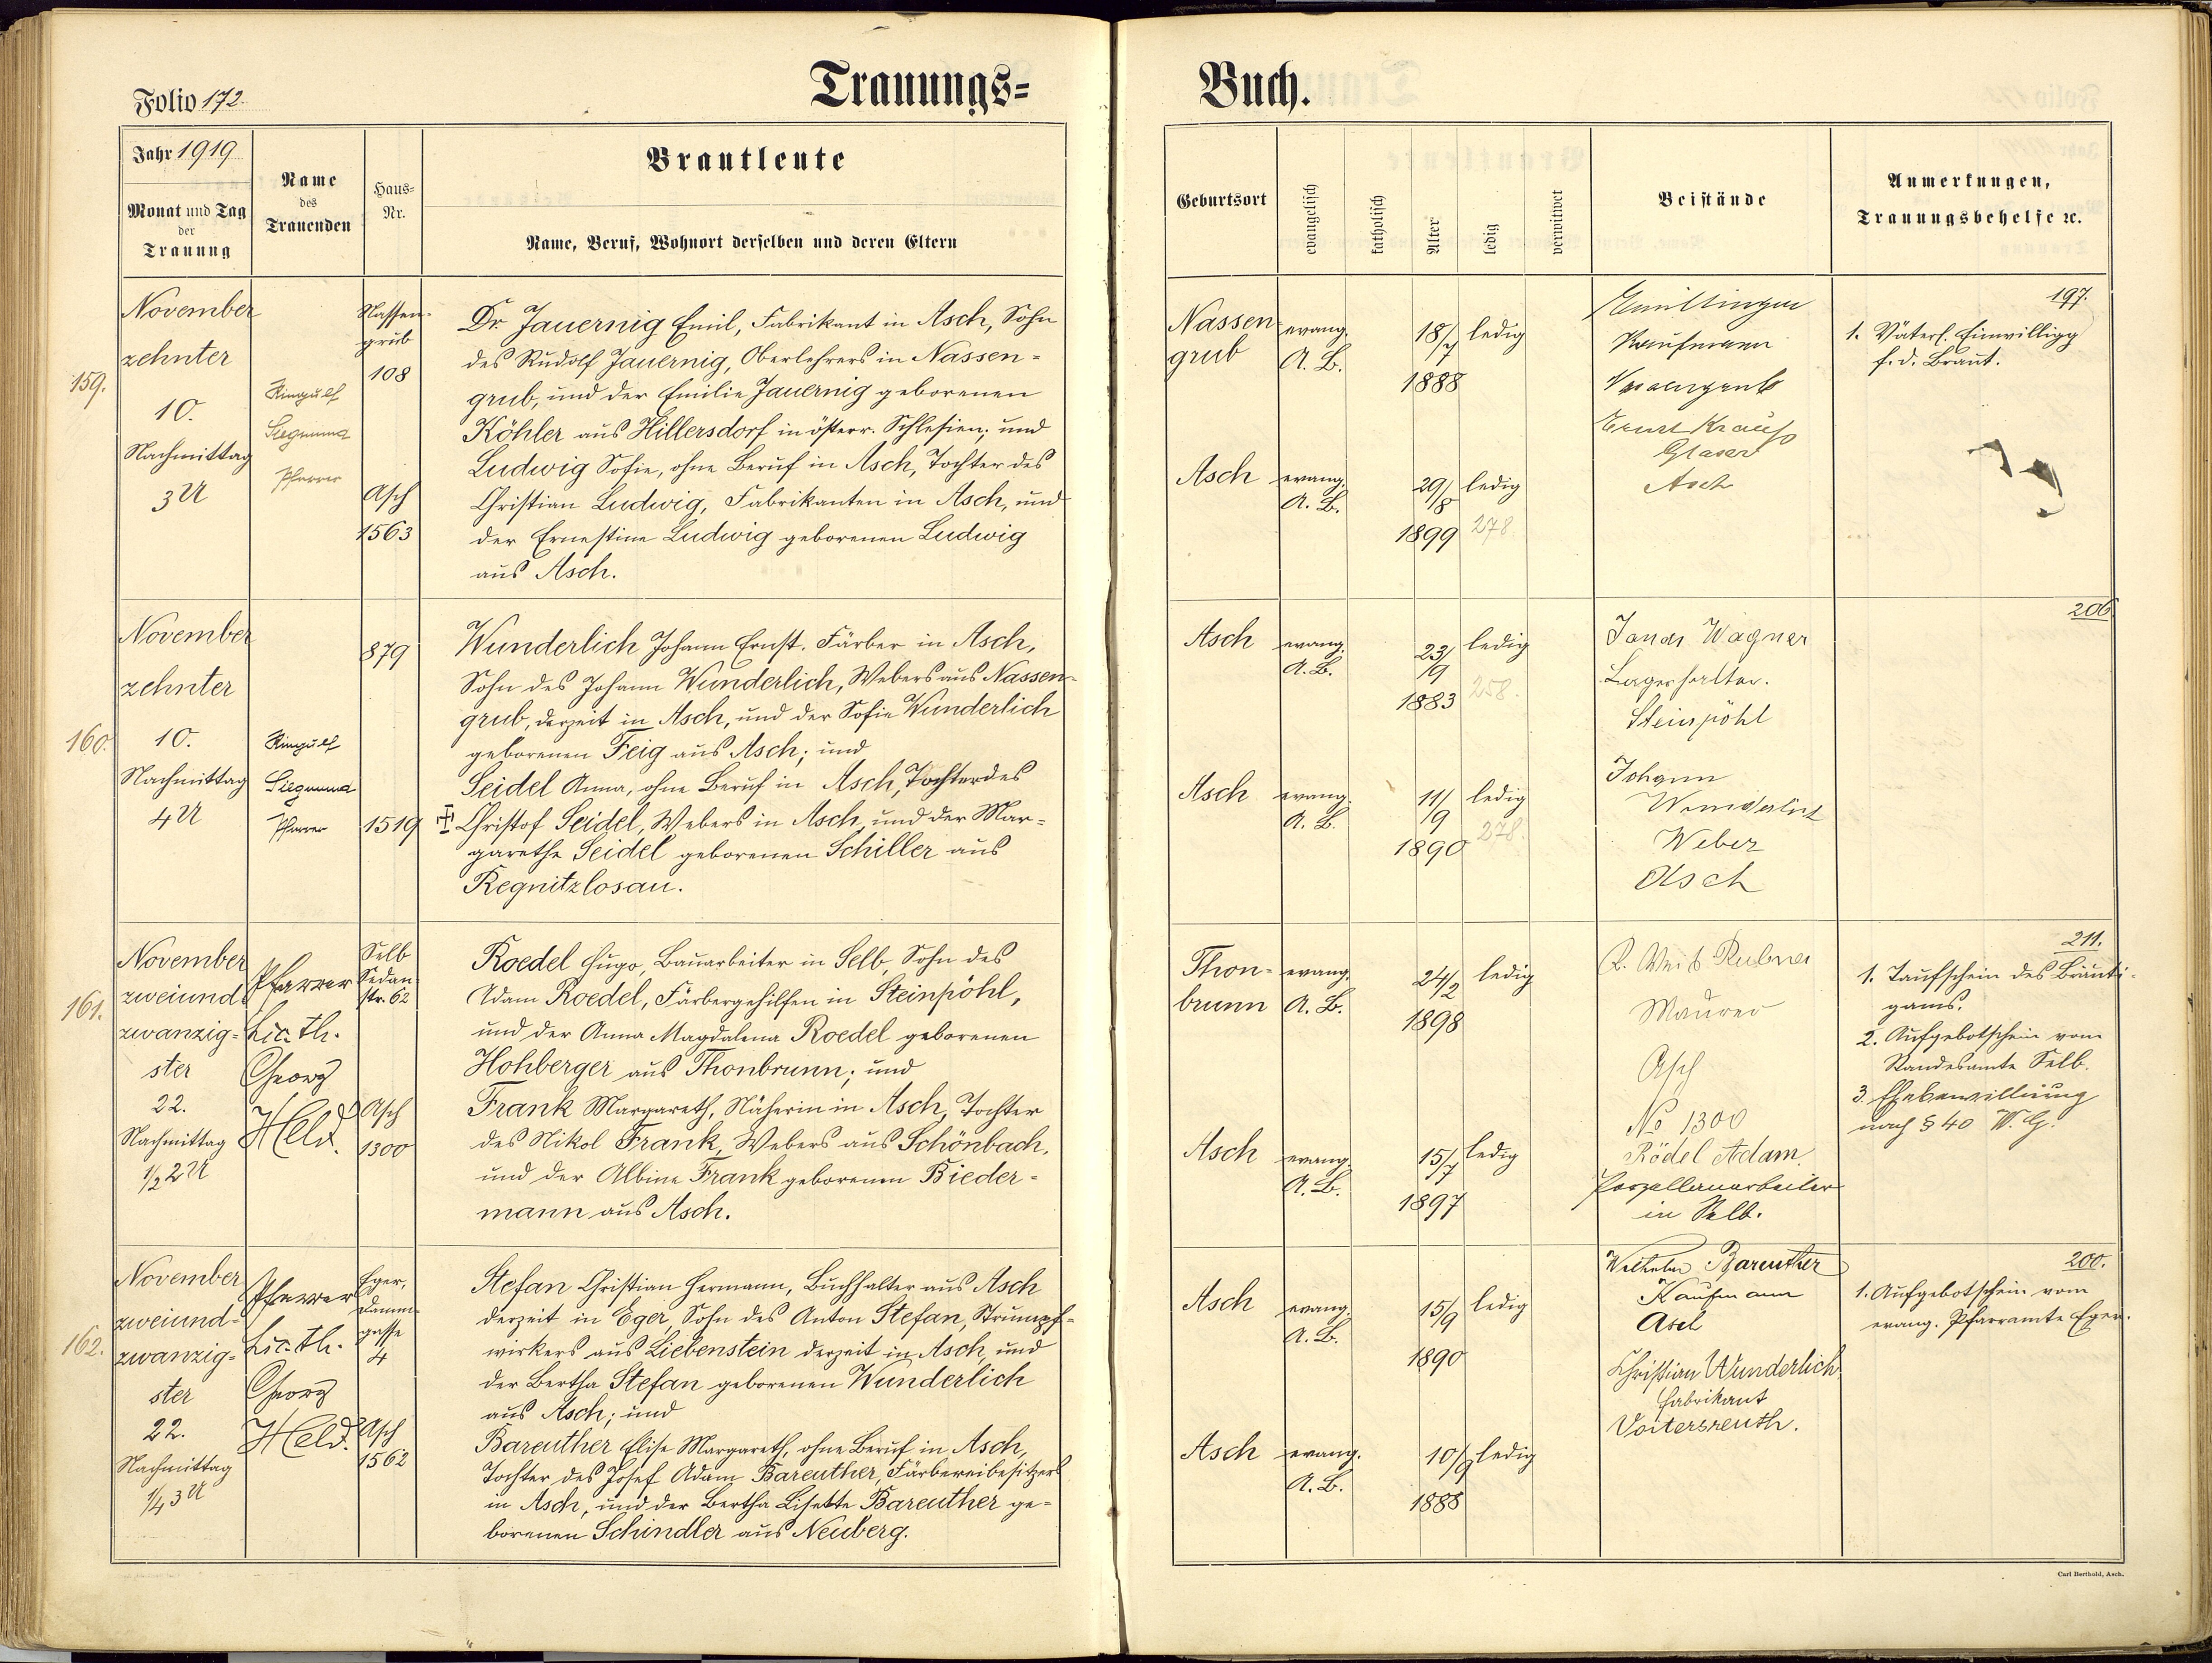 Folio 172.
Trauungs=
Buch.
Jahr 1919
Monat und Tag
der
Trauung
Name
des
Trauenden
Haus=
Nr.
Brautleute
Name, Beruf, Wohnort derselben und deren Eltern
Geburtsort
evangelisch
katholisch
Alter
ledig
verwitwet
Beistände
Anmerkungen,
Trauungsbehelfe ec.
159.
November
zehnter
10.
Nachmittag
3 U
Ringulf
Siegmund
Pfarrer
Nassen-
grub
108
Asch
1563
Dr Jauernig Emil, Fabrikant in Asch, Sohn
des Rudolf Jauernig, Oberlehrers in Nassen=
grub, und der Emilie Jauernig geborenen
Köhler aus Hillersdorf in österr. Schlesien; und
Ludwig Sofie, ohne Beruf in Asch, Tochter des
Christian Ludwig, Fabrikanten in Asch, und
der Ernestine Ludwig geborenen Ludwig
aus Asch.
Nassen=
grub
evang.
A. B.
18/7
1888
ledig
Asch
evang.
A. B.
29/8
1899
ledig
278.
Kaufmann
Nassengrub
Ernst Krauß
Glaser
Asch
197.
1. Väterl. Einwilligg
f. d. Braut.
160.
November
zehnter
10.
Nachmittag
4 U
Ringulf
Siegmund
Pfarrer
879
1519
Wunderlich Johann Ernst, Färber in Asch,
Sohn des Johann Wunderlich, Webers aus Nassen=
grub, derzeit in Asch, und der Sofie Wunderlich
geborenen Feig aus Asch; und
Seidel Anna, ohne Beruf in Asch, Tochter des
Christof Seidel, Webers in Asch, und der Mar=
garethe Seidel geborenen Schiller aus
Regnitzlosau.
Asch
evang.
A. B.
23/9
1883
ledig
258.
Asch
evang.
A. B.
11/9
1890
ledig
278.
Wagner
Lagerhalter.
Steinpöhl
Johann
Wunderlich
Weber
Asch
206
161.
November
zweiund=
zwanzig=
ster
22.
Nachmittag
1/2 2 U
Pfarrer
Lic. th.
Georg
Held.
Selb
Sedan
str. 62
Asch
1300
Roedel Hugo, Bauarbeiter in Selb, Sohn des
Adam Roedel, Färbergehilfen in Steinpöhl,
und der Anna Magdalena Roedel geborenen
Hohberger aus Thonbrunn; und
Frank Margareth, Näherin in Asch, Tochter
des Nikol Frank, Webers aus Schönbach,
und der Albine Frank geborenen Bieder=
mann aus Asch.
Thon=
brunn
evang.
A. B.
24/2
1898
ledig
Asch
evang.
A. B.
15/7
1897
ledig
Rubner
Maurer
Asch
No 1300
Rödel Adam
Porzellanarbeiter
in Selb.
211.
1. Taufschein des Bräuti=
gams.
2. Aufgebotschein vom
Standesamte Selb.
3. Ehebewilligung
nach § 40 W. G.
162.
November
zweiund=
zwanzig=
ster
22.
Nachmittag
1/4 3 U
Pfarrer
Lic. th.
Georg
Held.
Eger,
Damm=
gasse
4
Asch
1562
Stefan Christian Hermann, Buchhalter aus Asch
derzeit in Eger, Sohn des Anton Stefan, Strumpf=
wirkers aus Liebenstein derzeit in Asch, und
der Bertha Stefan geborenen Wunderlich
aus Asch; und
Bareuther Elise Margareth, ohne Beruf in Asch,
Tochter des Josef Adam Bareuther, Färbereibesitzers
in Asch, und der Bertha Lisette Bareuther ge=
borenen Schindler aus Neuberg.
Asch
evang.
A. B.
15/9
1890
ledig
Asch
evang.
A. B.
10/9
1888
ledig
Wilhelm Bareuther
Kaufmann
Asch
Christian Wunderlich
Fabrikant
Voitersreuth.
200.
1. Aufgebotschein vom
evang. Pfarramte Eger.
Carl Berthold, Asch.